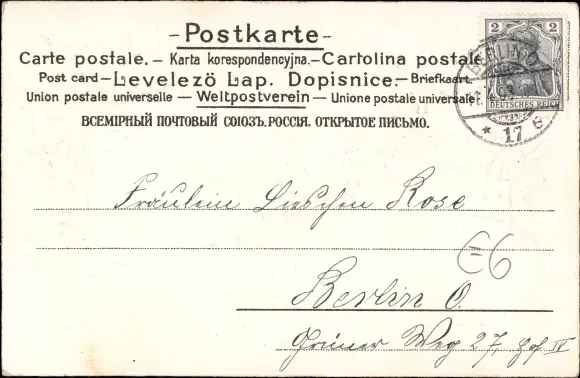 - Postkarte -
Carte postale. - Karta korespondencyjna. - Cartolina postale
Post card - Levelezö Lap. Dopisnice. - Briefkaart.
Union postale universelle - Weltpostverein - Unione postale universale
ВСЕМІРНЫЙ ПОЧТОВЫЙ СОЮЗЪ. РОССІЯ. ОТКРЫТОЕ ПИСЬМО.
2 2
DEUTSCHES REICH
BERLIN
* 17 e
Fräulein Lieschen Rose
E6
Berlin O.
Grüner Weg 27, Hof IV